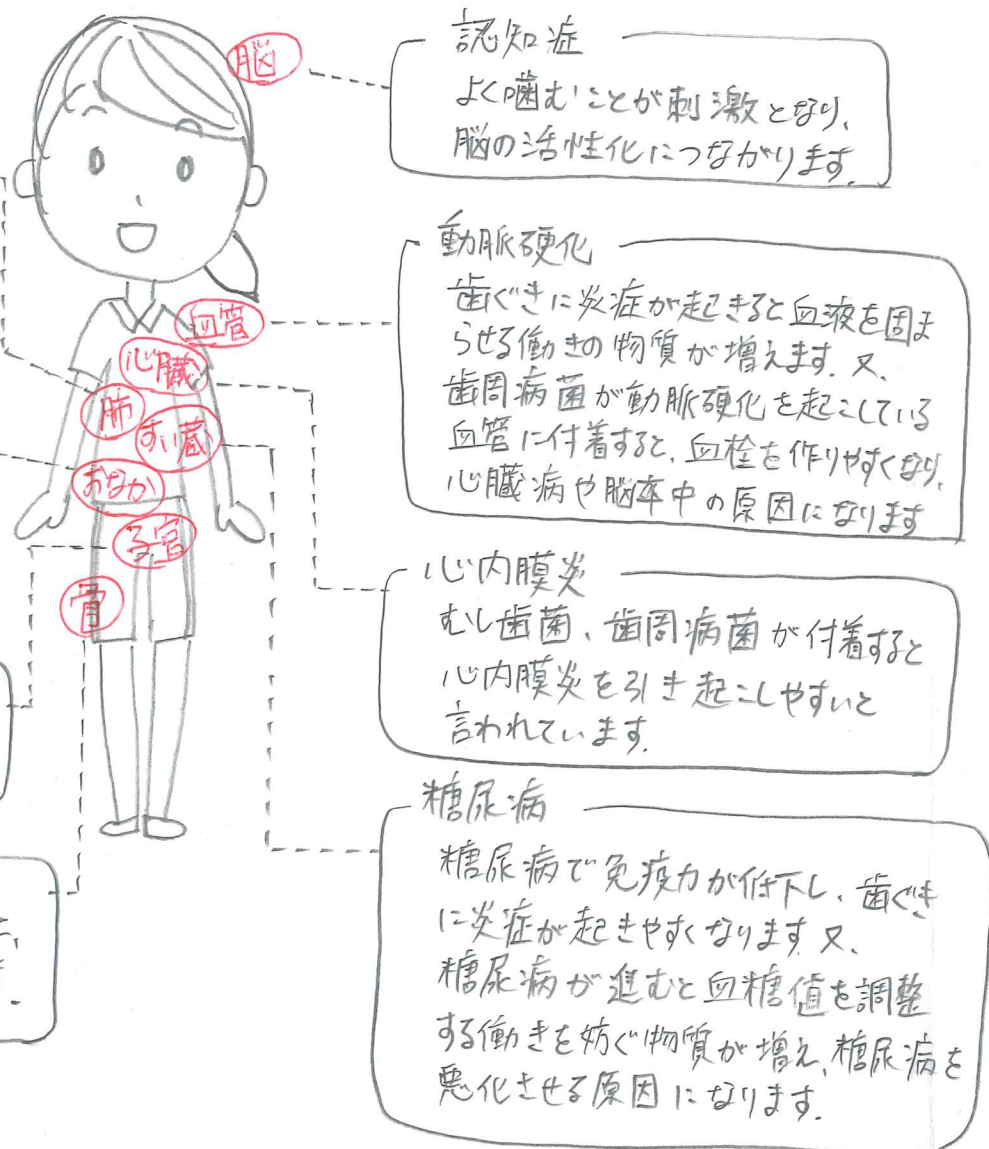 脳
認知症
よく噛むことが刺激となり、
脳の活性化につながります。
血管
心臓
肺
すい蔵
おなか
子宮
骨
動脈硬化
歯ぐきに炎症が起きると血液を固ま
らせる働きの物質が増えます。又、
歯周病菌が動脈硬化を起こしている
血管に付着すると、血栓を作りやすくなり、
心臓病や脳卒中の原因になります
心内膜炎
むし歯菌、歯周病菌が付着すると
心内膜炎を引き起こしやすいと
言われています。
糖尿病
糖尿病で免疫力が低下し、歯ぐき
に炎症が起きやすくなります又、
糖尿病が進むと血糖値を調整
する働きを妨ぐ物質が増え、糖尿病を
悪化させる原因になります。